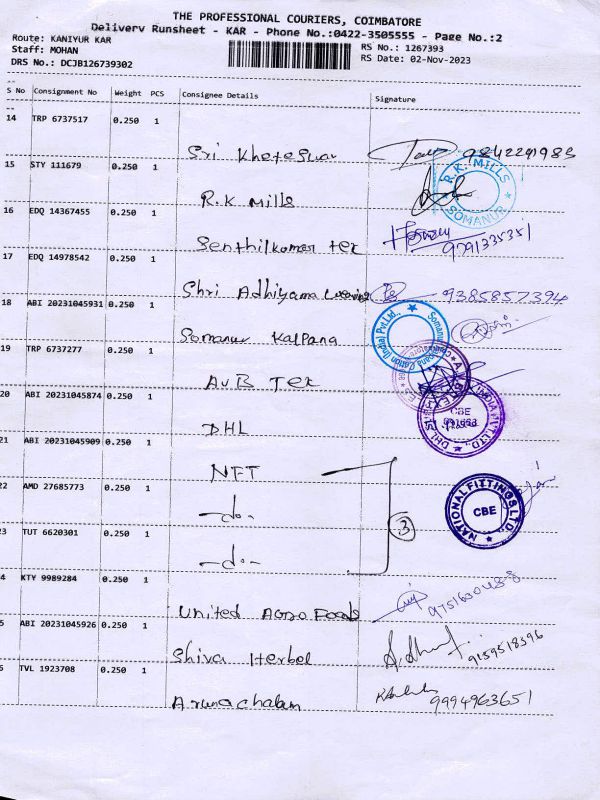 THE PROFESSIONAL COURIERS, COIMBATORE
Delivery Runsheet - KAR - Phone No.:0422-3505555 - Page No.:2
Route: KANIYUR KAR
Staff: MOHAN
DRS No.: DCJB126739302
RS No.: 1267393
RS Date: 02-Nov-2023
S No Consignment No Weight PCS Consignee Details Signature
14 TRP 6737517 0.250 1
Sri Khoteswar 9842291985
15 STY 111679 0.250 1
R.K Mills
R.K. MILLS ★ SOMANUR ★
16 EDQ 14367455 0.250 1
Senthilkumar tex 9791335351
17 EDQ 14978542 0.250 1
Shri Adhiyama weaving 9385857394
18 ABI 20231045931 0.250 1
Somanur Kalpana
Somanur Kalpana Cotton (India) Pvt.Ltd.,
19 TRP 6737277 0.250 1
AVB Tex
20 ABI 20231045874 0.250 1
DHL
CBE
21 ABI 20231045909 0.250 1
NFT
22 AMD 27685773 0.250 1
-do-
3
NATIONAL FITTINGS LTD. ★ CBE
23 TUT 6620301 0.250 1
-do-
4 KTY 9989284 0.250 1
United Agro Foods
5 ABI 20231045926 0.250 1
Shiva Herbel 9159518596
6 TVL 1923708 0.250 1
Arunachalam 9994963651